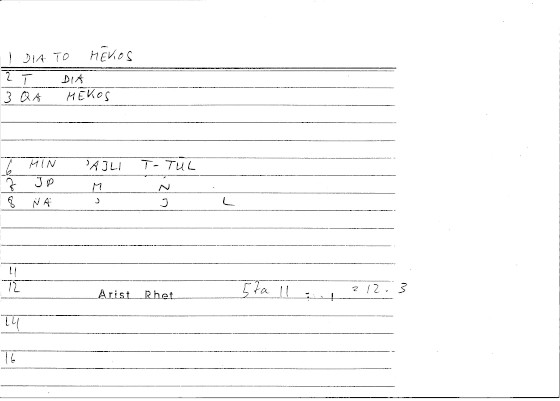 1 DIA TO MĒKOS
2 T DIA
3 QA MĒKOS
6 MIN ʾAJLI T-TŪL
7 M N
8 NA ʾ J L
11
12 Arist Rhet 57a 11 = 12. 3
14
16